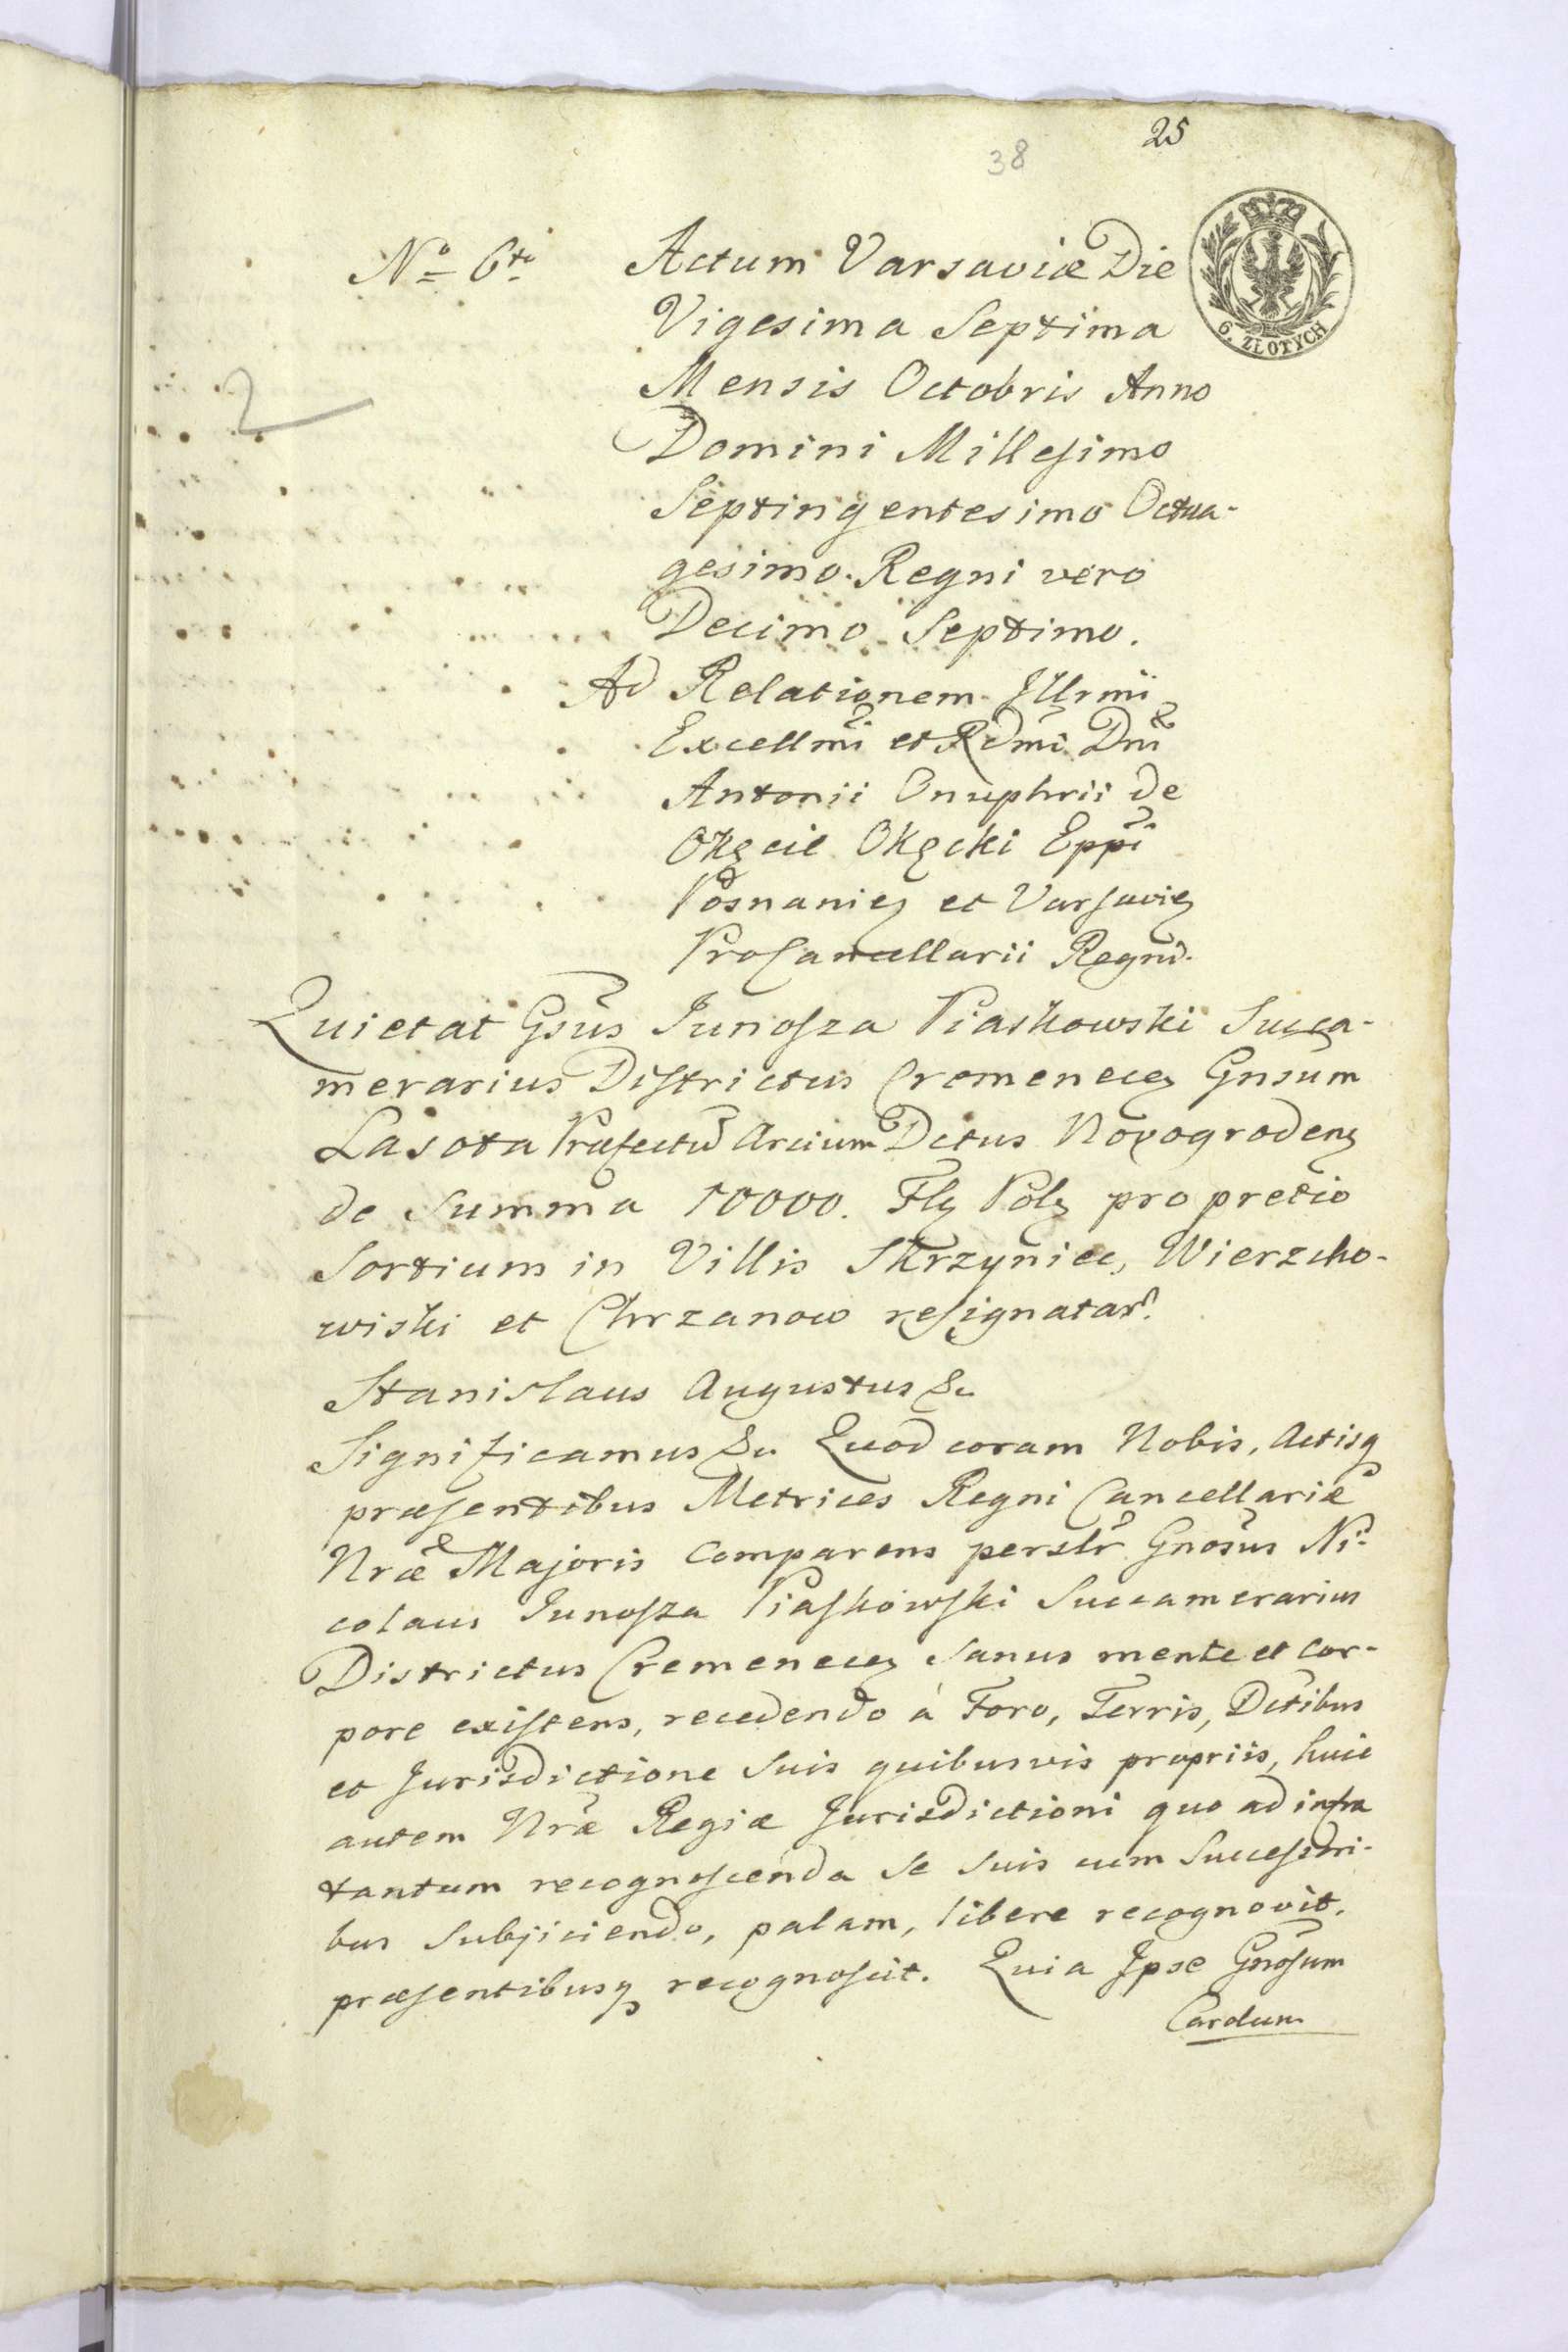 25
38
6. ZŁOTYCH
No 6to
Actum Varsaviæ Die
Vigesima Septima
Mensis Octobris Anno
Domini Millesimo
Septingentesimo Octua-
gesimo. Regni vero
Decimo Septimo.
Ad Relationem Illrmi
Excellmi et Rdmi Dni
Antonii Onuphrii de
Okęcie Okęcki Eppi
Posnanien et Varsavien
ProCancellarii Regni.
2
Quietat Gsus Junosza Piaskowski Succa-
merarius Districtus Cremenecen Gnsum
Lasota Præfectum Arcium Dctus Novogroden
de Summa 10000. Fl Pol pro pretio
Sortium in Villis Skrzyniec, Wierzcho-
wiski et Chrzanow resignatar.
Stanislaus Augustus &c
Significamus &c Quod coram Nobis, Actisq
præsentibus Metrices Regni Cancellariæ
Nræ Majoris Comparens perslr Gnosus Ni-
colaus Junosza Piaskowski Succamerarius
Districtus Cremenecen Sanus mente et Cor-
pore existens, recedendo à Foro, Terris, Dctibus
et Jurisdictione Suis quibusvis propriis, huic
autem Nræ Regiæ Jurisdictioni quo ad infra
tantum recognoscenda Se Suis cum Successori-
bus Subjiciendo, palam, libere recognovit,
præsentibusq recognoscit. Quia Ipse Gnosum
Carolum